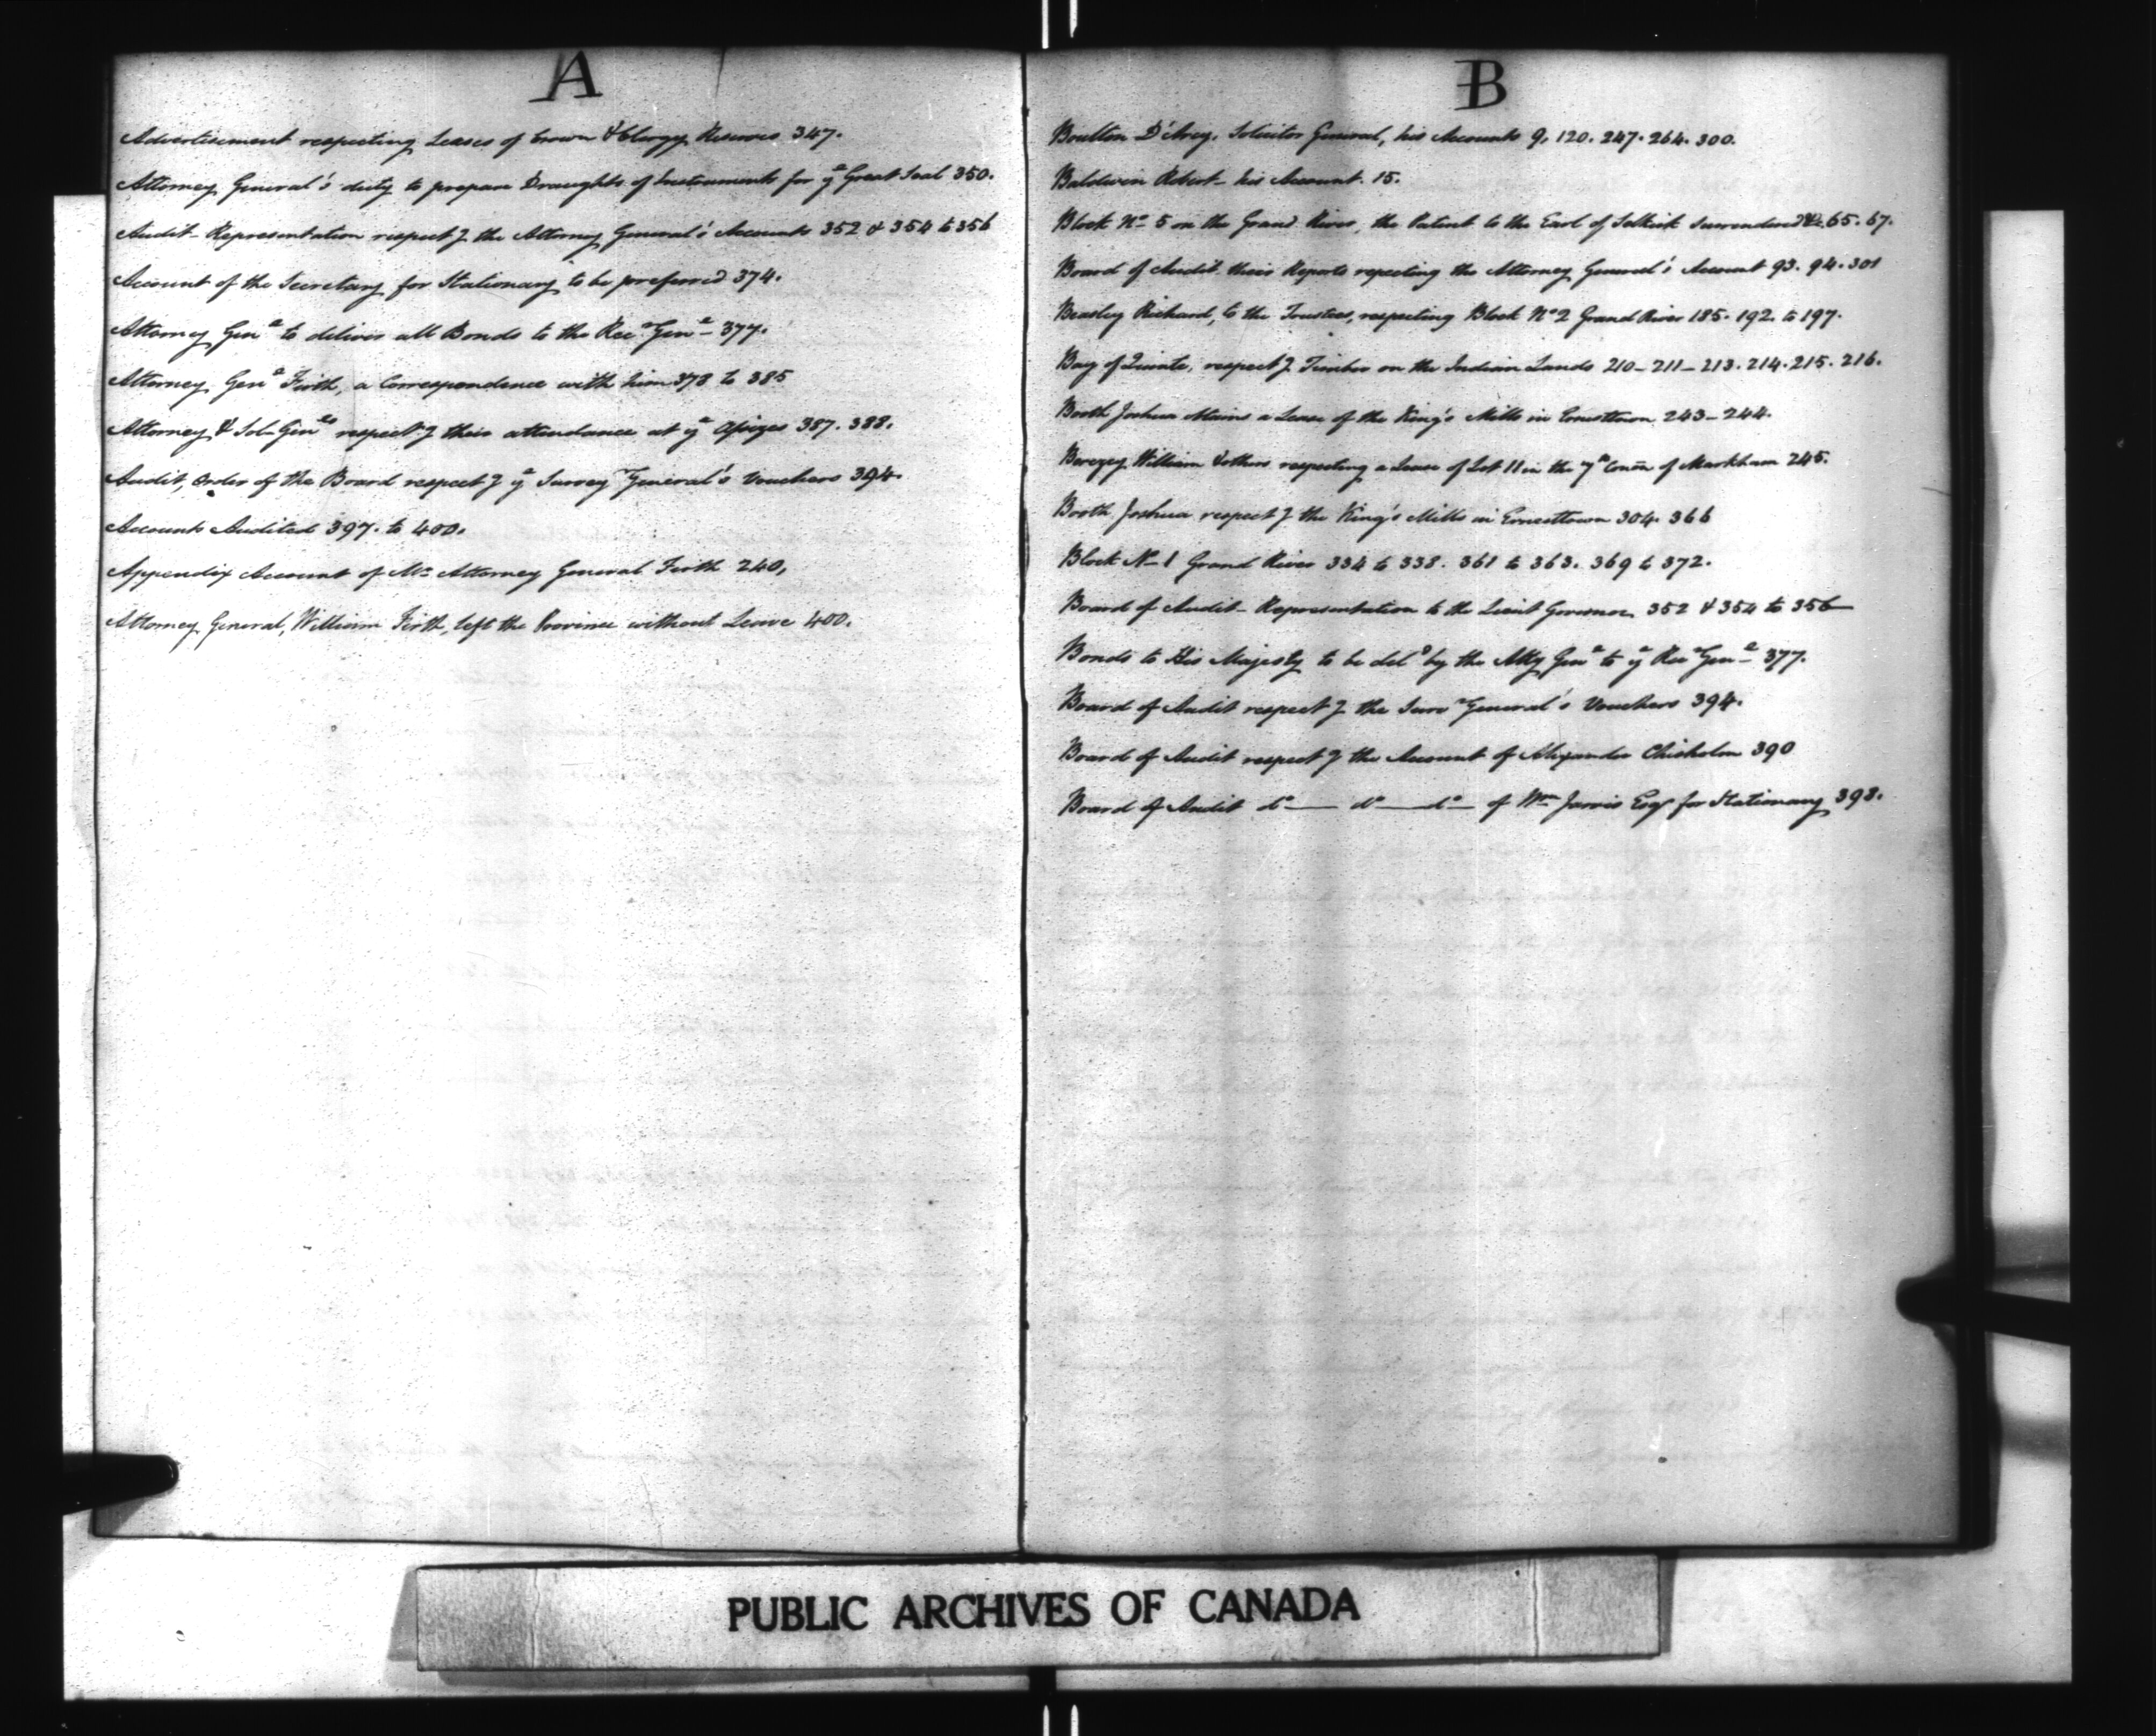 A
Advertisement respecting Leases of Crown & Clergy Reserves 347.
Attorney General's duty to prepare Draughts of Instruments for ye Great Seal 350.
Audit - Representation respectg the Attorney General's Accounts 352 & 354 to 356
Account of the Secretary for Stationary to be preferred 374.
Attorney Genl to deliver all Bonds to the Recr Genl 377.
Attorney Genl Firth, a Correspondence with him 378 to 385
Attorney & Sol- Genls respectg their attendance at ye Assizes 387. 388.
Audit, Order of the Board respectg ye Survey General's Vouchers 394.
Accounts Audited 397. to 400.
Appendix Account of Mr Attorney General Firth 240,
Attorney General, William Firth, left the Province without Leave 400.
B
Boulton D'Arcy, Solicitor General, his Accounts 9, 120. 247. 264. 300.
Baldwin Robert - his Account. 15.
Block No 5 on the Grand River, the Patent to the Earl of Selkirk Surrendered &c. 65. 67.
Board of Audit their Reports repecting the Attorney General's Account 93. 94. 301
Beasley Richard, to the Trustees, respecting Block No 2 Grand River 185. 192. to 197.
Bay of Quinte, respectg Timber on the Indian Lands 210 - 211 - 213. 214. 215. 216.
Booth Joshua obtains a Lease of the King's Mills in Ernesttown 243 - 244.
Berczy William & others respecting a Lease of Lot 11 in the 7th Conn of Markham 245.
Booth Joshua respectg the King's Mills in Ernesttown 304. 366
Block No 1 Grand River 334 to 338. 361 to 363. 369 to 372.
Board of Audit - Representation to the Lieut Governor 352 & 354 to 356
Bonds to His Majesty to be deld by the Atty Genl to ye Recr Genl 377.
Board of Audit respectg the Survr General's Vouchers 394.
Board of Audit respectg the Account of Alexander Chisholm 390
Board of Audit do do do of Wm Jarvis Esqr for Stationary 393.
PUBLIC ARCHIVES OF CANADA